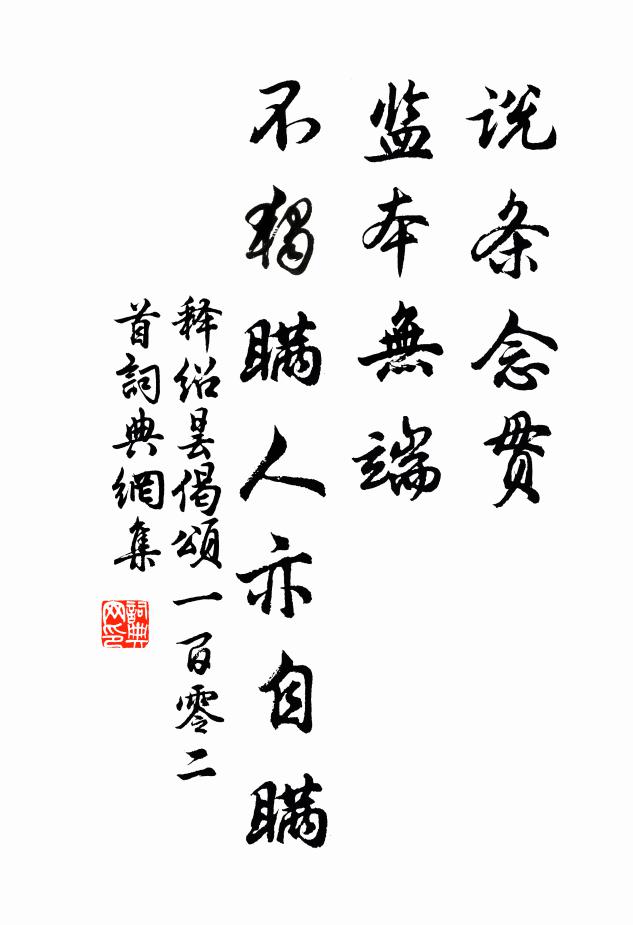 说条念贯
监本無端
不独瞒人亦自瞒
释绍昙偈頌一百零二
首詞典網集
詞典
网印